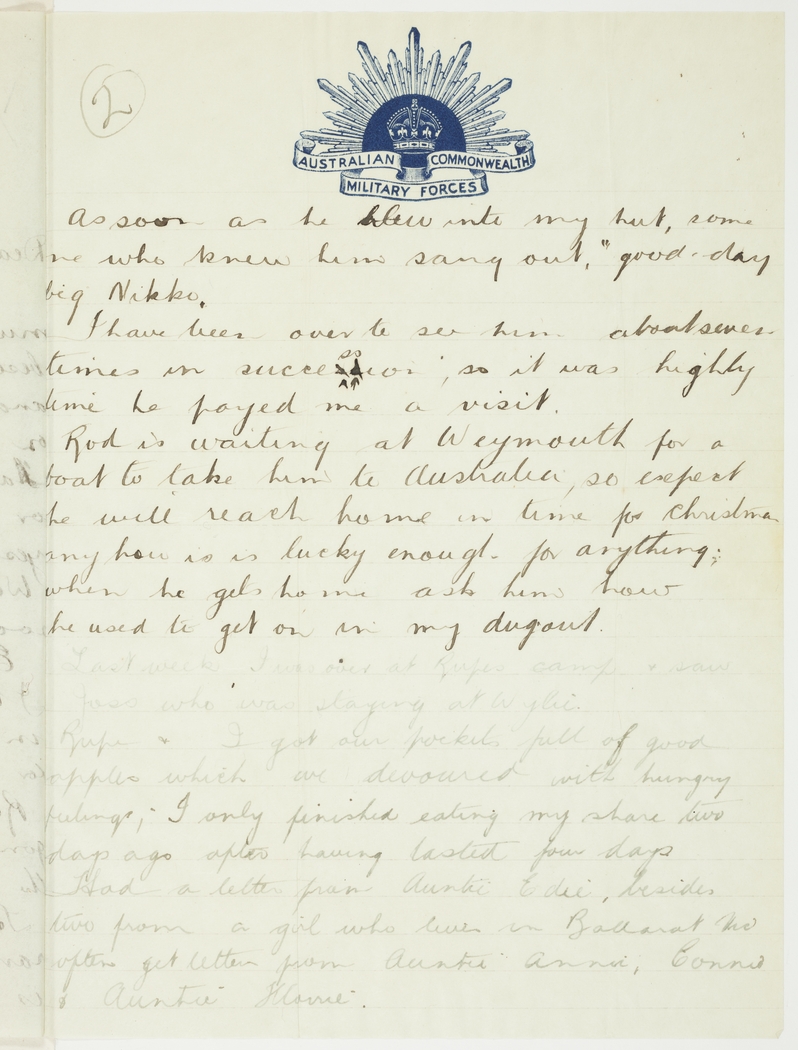 2
AUSTRALIAN COMMONWEALTH
MILITARY FORCES
As soon as he blew into my hut, some
ne who knew him sang out, "good-day
big Nikko.
I have been over to see him about seven
times in succession, so it was highly
time he payed me a visit.
Rod is waiting at Weymouth for a
boat to take him to Australia, so expect
he will reach home in time for Christma
anyhow is is lucky enough for anything;
when he gets home ask him how
he used to get on in my dugout.
Last week I was over at Rupes camp & saw
who was staying at Wylie.
Rupe & I got our pockets full of good
apples which we devoured with hungry
feelings; I only finished eating my share two
days ago after having lasted four days
Had a letter from Auntie Edie, besides
two from a girl who lives in Ballarat
often get letters from Auntie Annie, Connie
& Auntie Florrie.